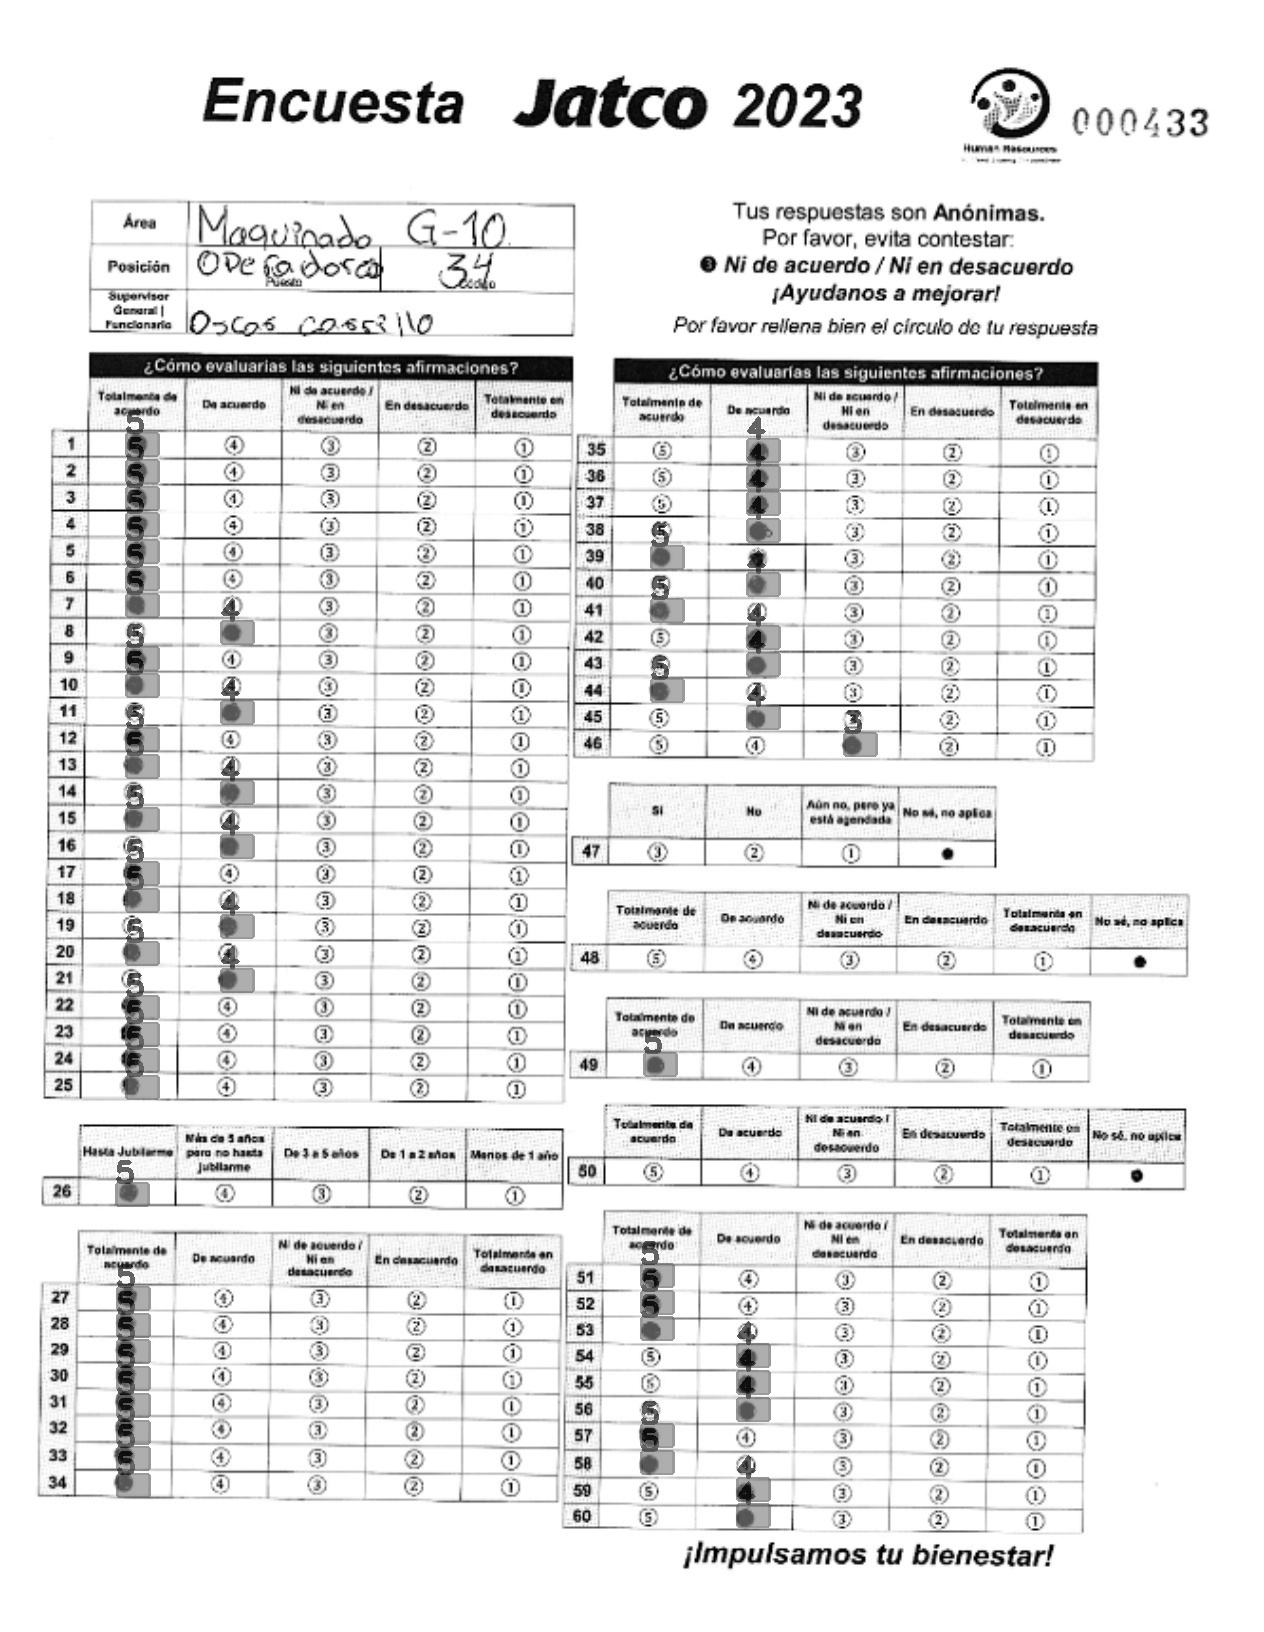 Encuesta Jatco 2023
Human Resources
000433
Área Maquinado G-10
Posición Operadora 34
Puesto
Supervisor General | Funcionario
Tus respuestas son Anónimas.
Por favor, evita contestar:
❸ Ni de acuerdo / Ni en desacuerdo
¡Ayudanos a mejorar!
Por favor rellena bien el círculo de tu respuesta
¿Cómo evaluarías las siguientes afirmaciones?
Totalmente de acuerdo De acuerdo Ni de acuerdo / Ni en desacuerdo En desacuerdo Totalmente en desacuerdo
5
1 5 4 3 2 1
2 5 4 3 2 1
3 5 4 3 2 1
4 5 4 3 2 1
5 5 4 3 2 1
6 5 4 3 2 1
7 4 3 2 1
8 5 3 2 1
9 5 4 3 2 1
10 4 3 2 1
11 5 3 2 1
12 5 4 3 2 1
13 4 3 2 1
14 5 3 2 1
15 4 3 2 1
16 5 3 2 1
17 5 4 3 2 1
18 4 3 2 1
19 5 3 2 1
20 4 3 2 1
21 5 3 2 1
22 5 4 3 2 1
23 5 4 3 2 1
24 5 4 3 2 1
25 4 3 2 1
Hasta Jubilarme Más de 5 años pero no hasta jubilarme De 3 a 5 años De 1 a 2 años Menos de 1 año
5
26 4 3 2 1
Totalmente de acuerdo De acuerdo Ni de acuerdo / Ni en desacuerdo En desacuerdo Totalmente en desacuerdo
5
27 5 4 3 2 1
28 5 4 3 2 1
29 5 4 3 2 1
30 5 4 3 2 1
31 5 4 3 2 1
32 5 4 3 2 1
33 5 4 3 2 1
34 4 3 2 1
¿Cómo evaluarías las siguientes afirmaciones?
Totalmente de acuerdo De acuerdo Ni de acuerdo / Ni en desacuerdo En desacuerdo Totalmente en desacuerdo
4
35 5 4 3 2 1
36 5 4 3 2 1
37 5 4 3 2 1
38 5 3 2 1
39 4 3 2 1
40 5 3 2 1
41 4 3 2 1
42 5 4 3 2 1
43 5 3 2 1
44 4 3 2 1
45 5 3 2 1
46 5 4 2 1
Si No Aún no, pero ya está agendada No sé, no aplica
47 3 2 1
Totalmente de acuerdo De acuerdo Ni de acuerdo / Ni en desacuerdo En desacuerdo Totalmente en desacuerdo No sé, no aplica
48 5 4 3 2 1
Totalmente de acuerdo De acuerdo Ni de acuerdo / Ni en desacuerdo En desacuerdo Totalmente en desacuerdo
5
49 4 3 2 1
Totalmente de acuerdo De acuerdo Ni de acuerdo / Ni en desacuerdo En desacuerdo Totalmente en desacuerdo No sé, no aplica
50 5 4 3 2 1
Totalmente de acuerdo De acuerdo Ni de acuerdo / Ni en desacuerdo En desacuerdo Totalmente en desacuerdo
5
51 5 4 3 2 1
52 5 4 3 2 1
53 4 3 2 1
54 5 4 3 2 1
55 5 4 3 2 1
56 5 3 2 1
57 5 4 3 2 1
58 4 3 2 1
59 5 4 3 2 1
60 5 3 2 1
¡Impulsamos tu bienestar!